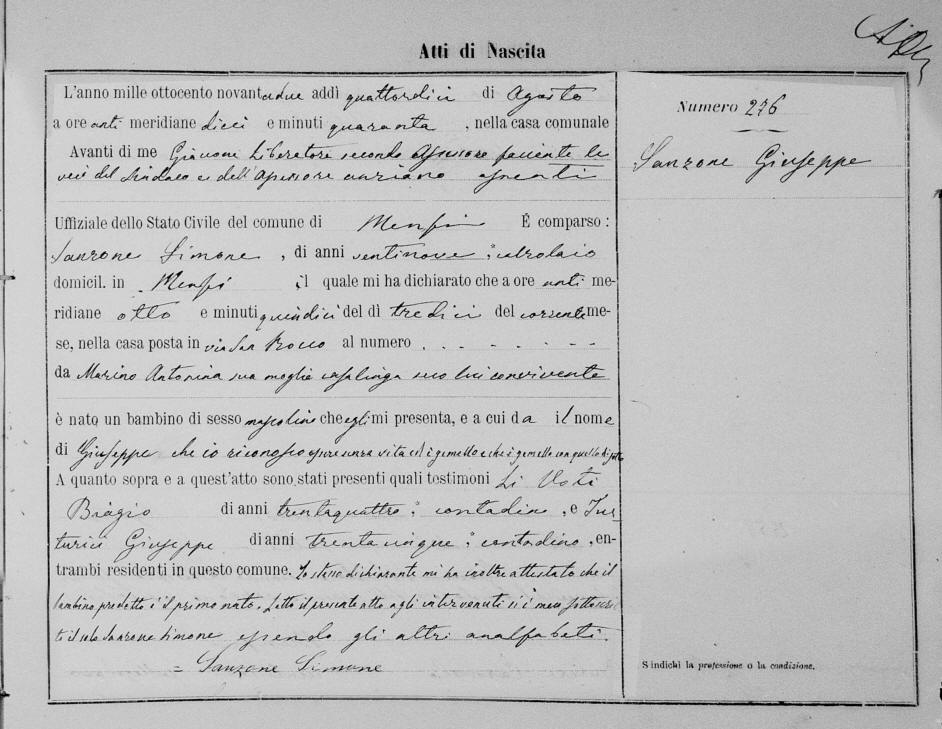 Atti di Nascita
L'anno mille ottocento novantadue addì quattordici di Agosto
a ore anti meridiane dieci e minuti quaranta, nella casa comunale
Avanti di me Giovone Liberatore secondo Assessore facente le
veci del Sindaco e dell'Assessore anziano assenti
Uffiziale dello Stato Civile del comune di Menfi È comparso:
Sanzone Simone, di anni ventinove,
domicil. in Menfi il quale mi ha dichiarato che a ore anti me-
ridiane otto e minuti quindici del dì tredici del corrente me-
se, nella casa posta in via San Rocco al numero . . - - - - -
da Marino Antonina sua moglie casalinga seco lui convivente
è nato un bambino di sesso mascolino che egli mi presenta, e a cui da il nome
di Giuseppe che io riconosco essere senza vita ed è gemello e che è gemello con quello di
A quanto sopra e a quest'atto sono stati presenti quali testimoni Li Voti
Biagio di anni trentaquattro, contadino, e Tur-
turici Giuseppe di anni trentacinque, contadino, en-
trambi residenti in questo comune. Lo stesso dichiarante mi ha inoltre attestato che il
bambino predetto è il primo nato. Letto il presente atto agli intervenuti si è meco sottoscrit-
to il solo Sanzone Simone essendo gli altri analfabeti.
= Sanzone Simone
Numero 276
Sanzone Giuseppe
S'indichi la professione o la condizione.